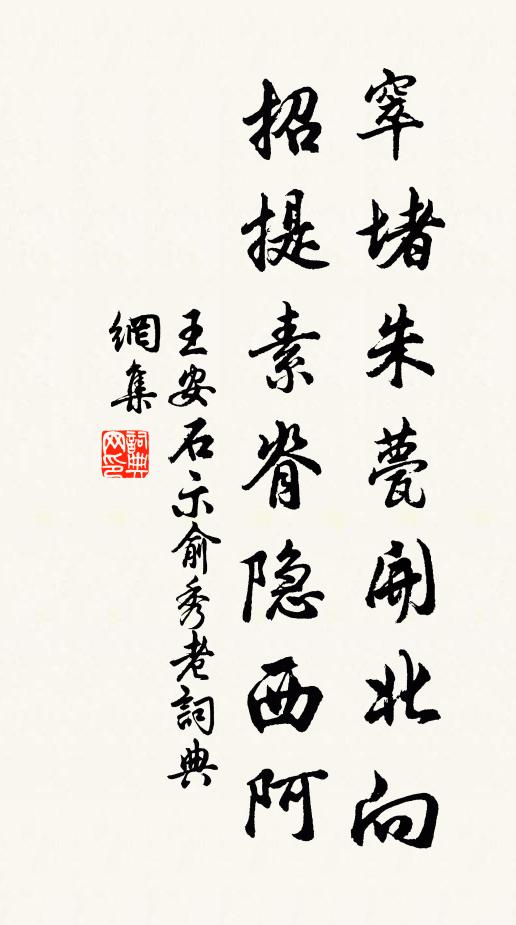 窣堵朱甍開北向
招提素脊隐西阿
王安石示俞秀老詞典
網集
詞典
网印